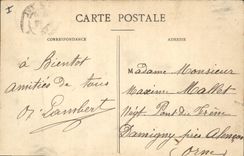 I
CARTE POSTALE
CORRESPONDANCE
ADRESSE
à Bientot
Amitiés de tous
Lambert
Madame Monsieur
Maxime Mallet
Pont du Frêne
Damigny près Alençon
Orne